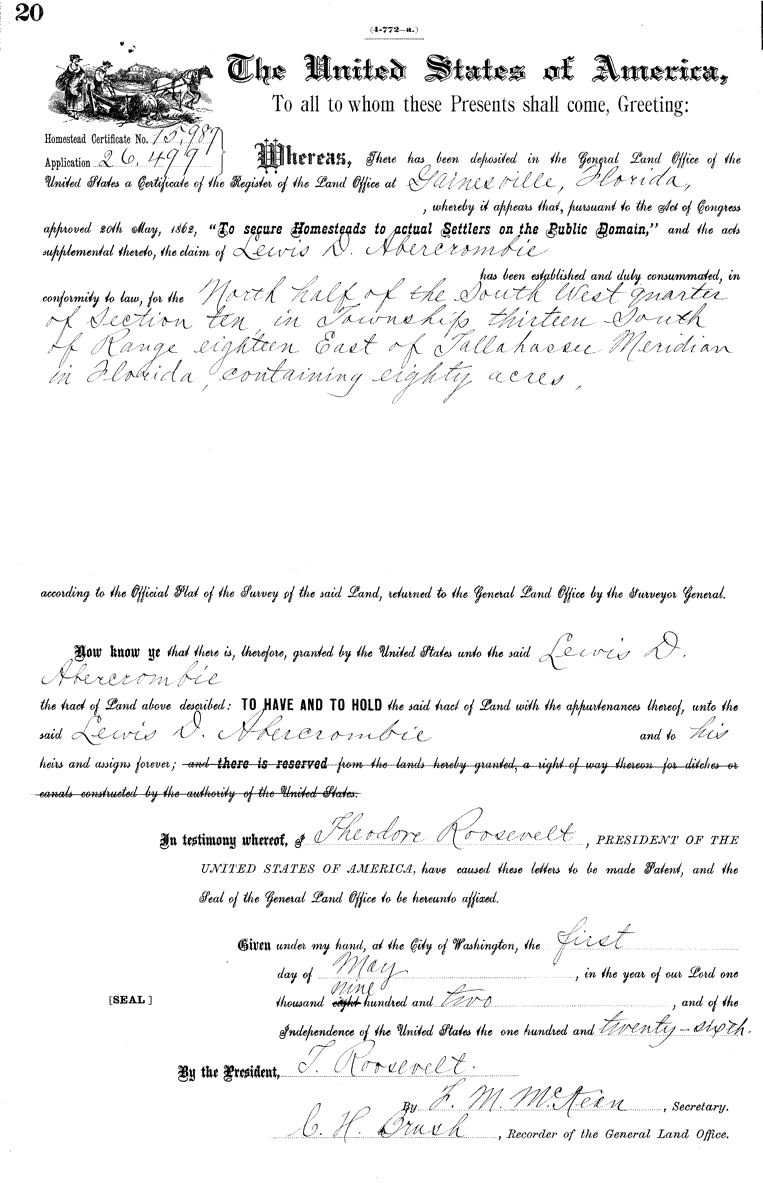 20
(4-772-a.)
The United States of America,
To all to whom these Presents shall come, Greeting:
Homestead Certificate No. 15,989
Application 26,499
Whereas, There has been deposited in the General Land Office of the
United States a Certificate of the Register of the Land Office at Gainesville, Florida,
, whereby it appears that, pursuant to the Act of Congress
approved 20th May, 1862, "To secure Homesteads to actual Settlers on the Public Domain," and the acts
supplemental thereto, the claim of Lewis D. Abercrombie
has been established and duly consummated, in
conformity to law, for the North half of the South West quarter
of Section ten, in Township thirteen South
of Range eighteen East of Tallahassee Meridian
in Florida, containing eighty acres,
according to the Official Plat of the Survey of the said Land, returned to the General Land Office by the Surveyor General.
Now know ye that there is, therefore, granted by the United States unto the said Lewis D.
Abercrombie
the tract of Land above described: TO HAVE AND TO HOLD the said tract of Land with the appurtenances thereof, unto the
said Lewis D. Abercrombie and to his
heirs and assigns forever; and there is reserved from the lands hereby granted, a right of way thereon for ditches or
canals constructed by the authority of the United States.
In testimony whereof, I Theodore Roosevelt, PRESIDENT OF THE
UNITED STATES OF AMERICA, have caused these letters to be made Patent, and the
Seal of the General Land Office to be hereunto affixed.
Given under my hand, at the City of Washington, the first
day of May, in the year of our Lord one
nine
[SEAL] thousand eight hundred and two, and of the
Independence of the United States the one hundred and twenty-sixth.
By the President, T. Roosevelt.
By F. M. McKean, Secretary.
C. H. Brush, Recorder of the General Land Office.